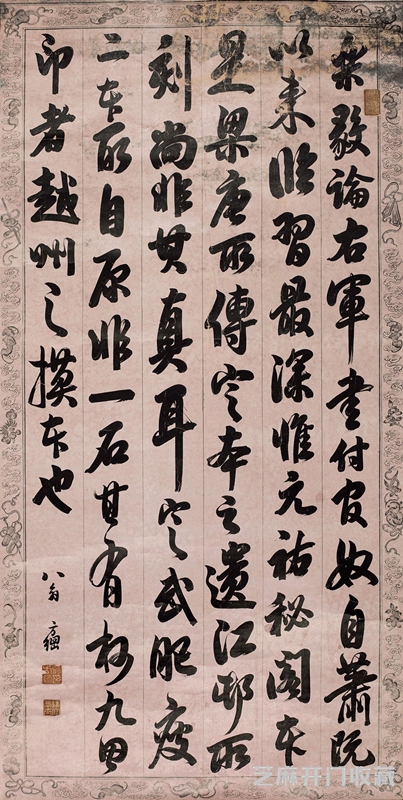 樂毅論右軍書付官奴自蕭阮
以來臨習最深惟元祐秘閣本
是梁唐所傳定本之遺江邨所
刻尚非其真耳定武肥瘦
二本所自原非一石其有初九田
印者越州之摸本也
八翁
芝麻开门收藏